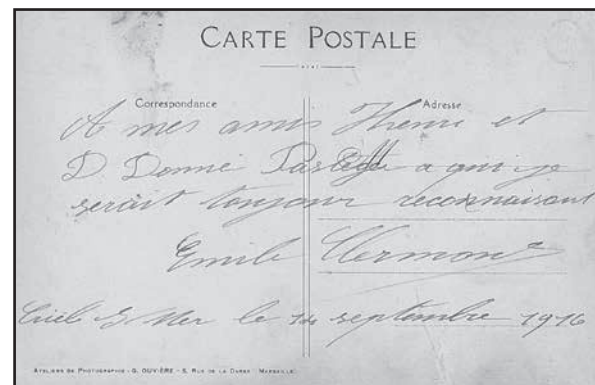 CARTE POSTALE
Correspondance
Adresse
A mes amis Henri et
D. Donné a qui je
serait toujour reconnaisant
Emile Clermont
S Mer le 14 septembre 1916
ATELIERS DE PHOTOGRAPHIE - G. OUVIÈRE - 5, RUE DE LA DARSE - MARSEILLE